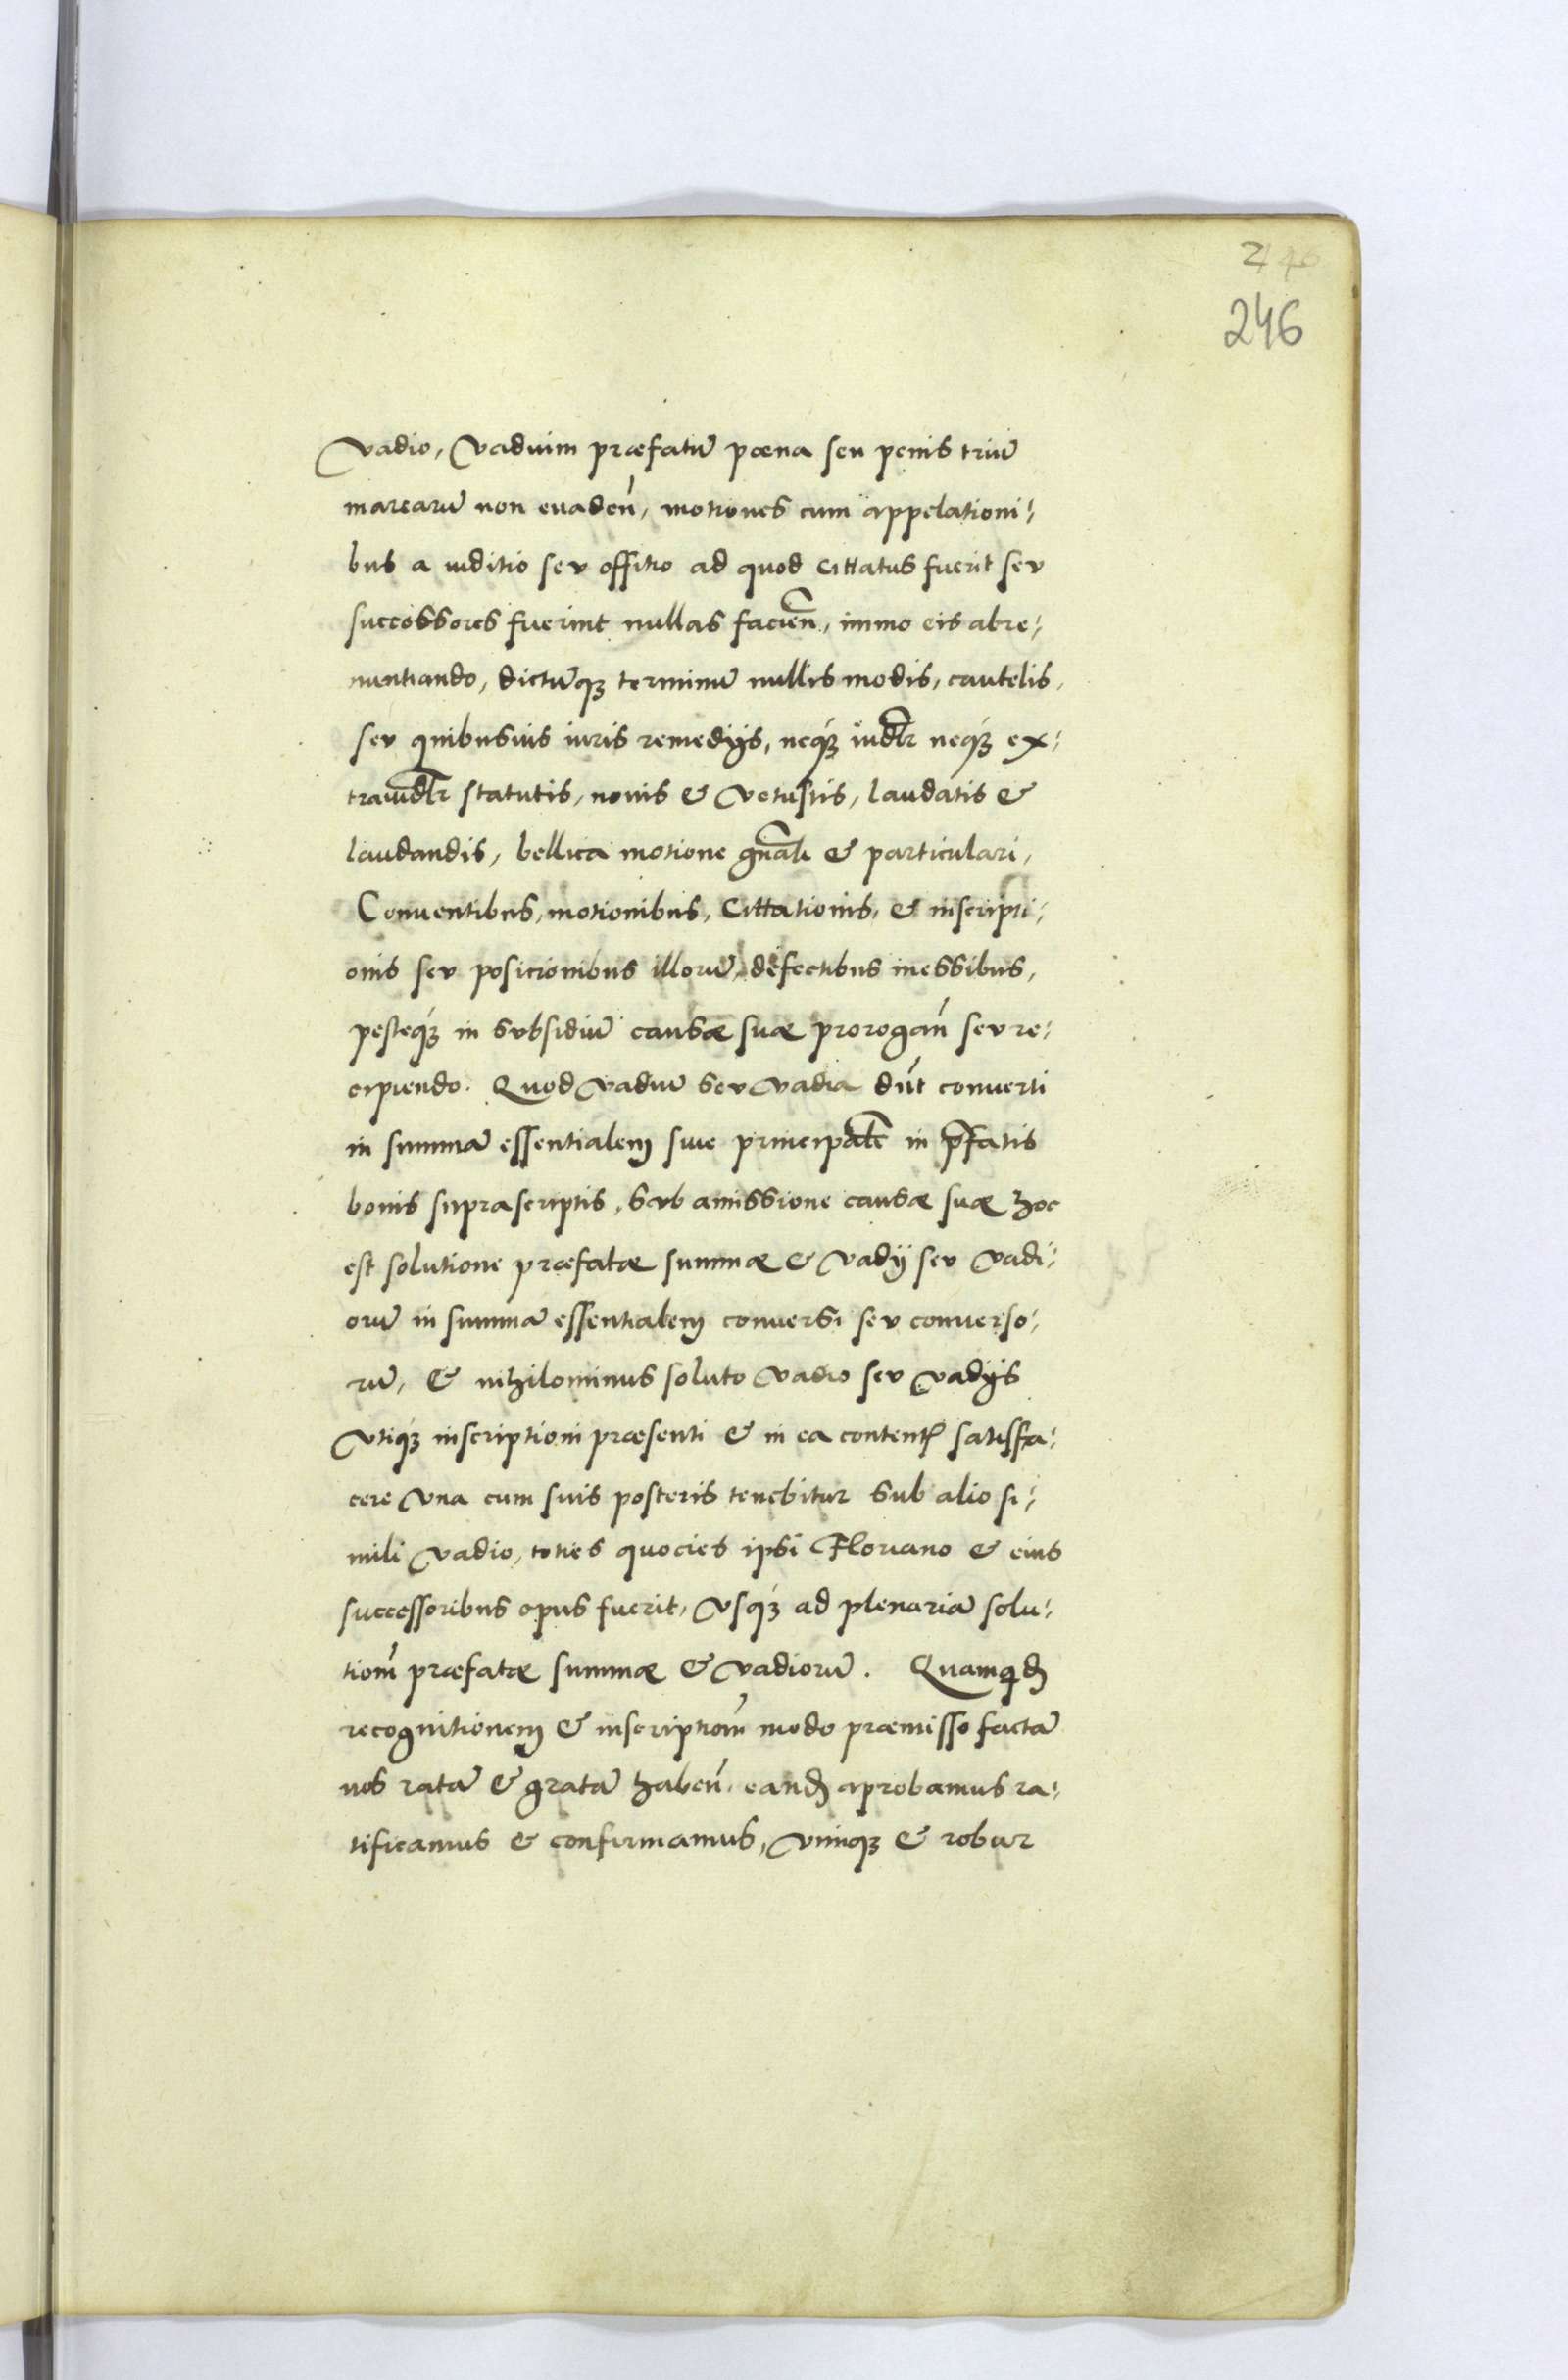 246
246
vadio, vadium præfatū pœna seu penis triū
marcarū non euadeń, motiones cum appelationi⹀
bus a iuditio seu offitio ad quod cittatus fuerit seu
successores fuerint nullas facień, immo eis abre⹀
nuntiando, dictūqȝ terminū nullis modis, cautelis,
seu quibusuis iuris remedijs, neqȝ iudlr neqȝ ex⹀
traiudlr statutis, nouis & vetustis, laudatis &
laudandis, bellica motione gnali & particulari,
Conuentibus, motionibus, Cittationis, & inscripti⹀
onis seu posicionibus illorū, defectibus messibus,
pesteqȝ in subsidiū causæ suæ prorogań seu re⹀
cipiendo. Quod vadiū seu vadia dńt conuerti
in summā essentialem siue principalē in p̄fatis
bonis suprascriptis, sub amissione causæ suæ hoc
est solutione præfatæ summæ & vadij seu vadi⹀
orū in summā essentialem conuersi seu conuerso⹀
rū, & nihilominus soluto vadio seu vadijs
vtiqȝ inscriptioni præsenti & in ea content̃ satisfa⹀
cere vna cum suis posteris tenebitur sub alio si⹀
mili vadio, toties quocies ipsi Floriano & eius
successoribus opus fuerit, vsqȝ ad plenariā solu⹀
tioń præfatæ summæ & vadiorū. Quamqd
recognitionem & inscriptioń modo præmisso factā
nos ratā & gratā habeń, eand aprobamus ra⹀
tificamus & confirmamus, vimqȝ & robur